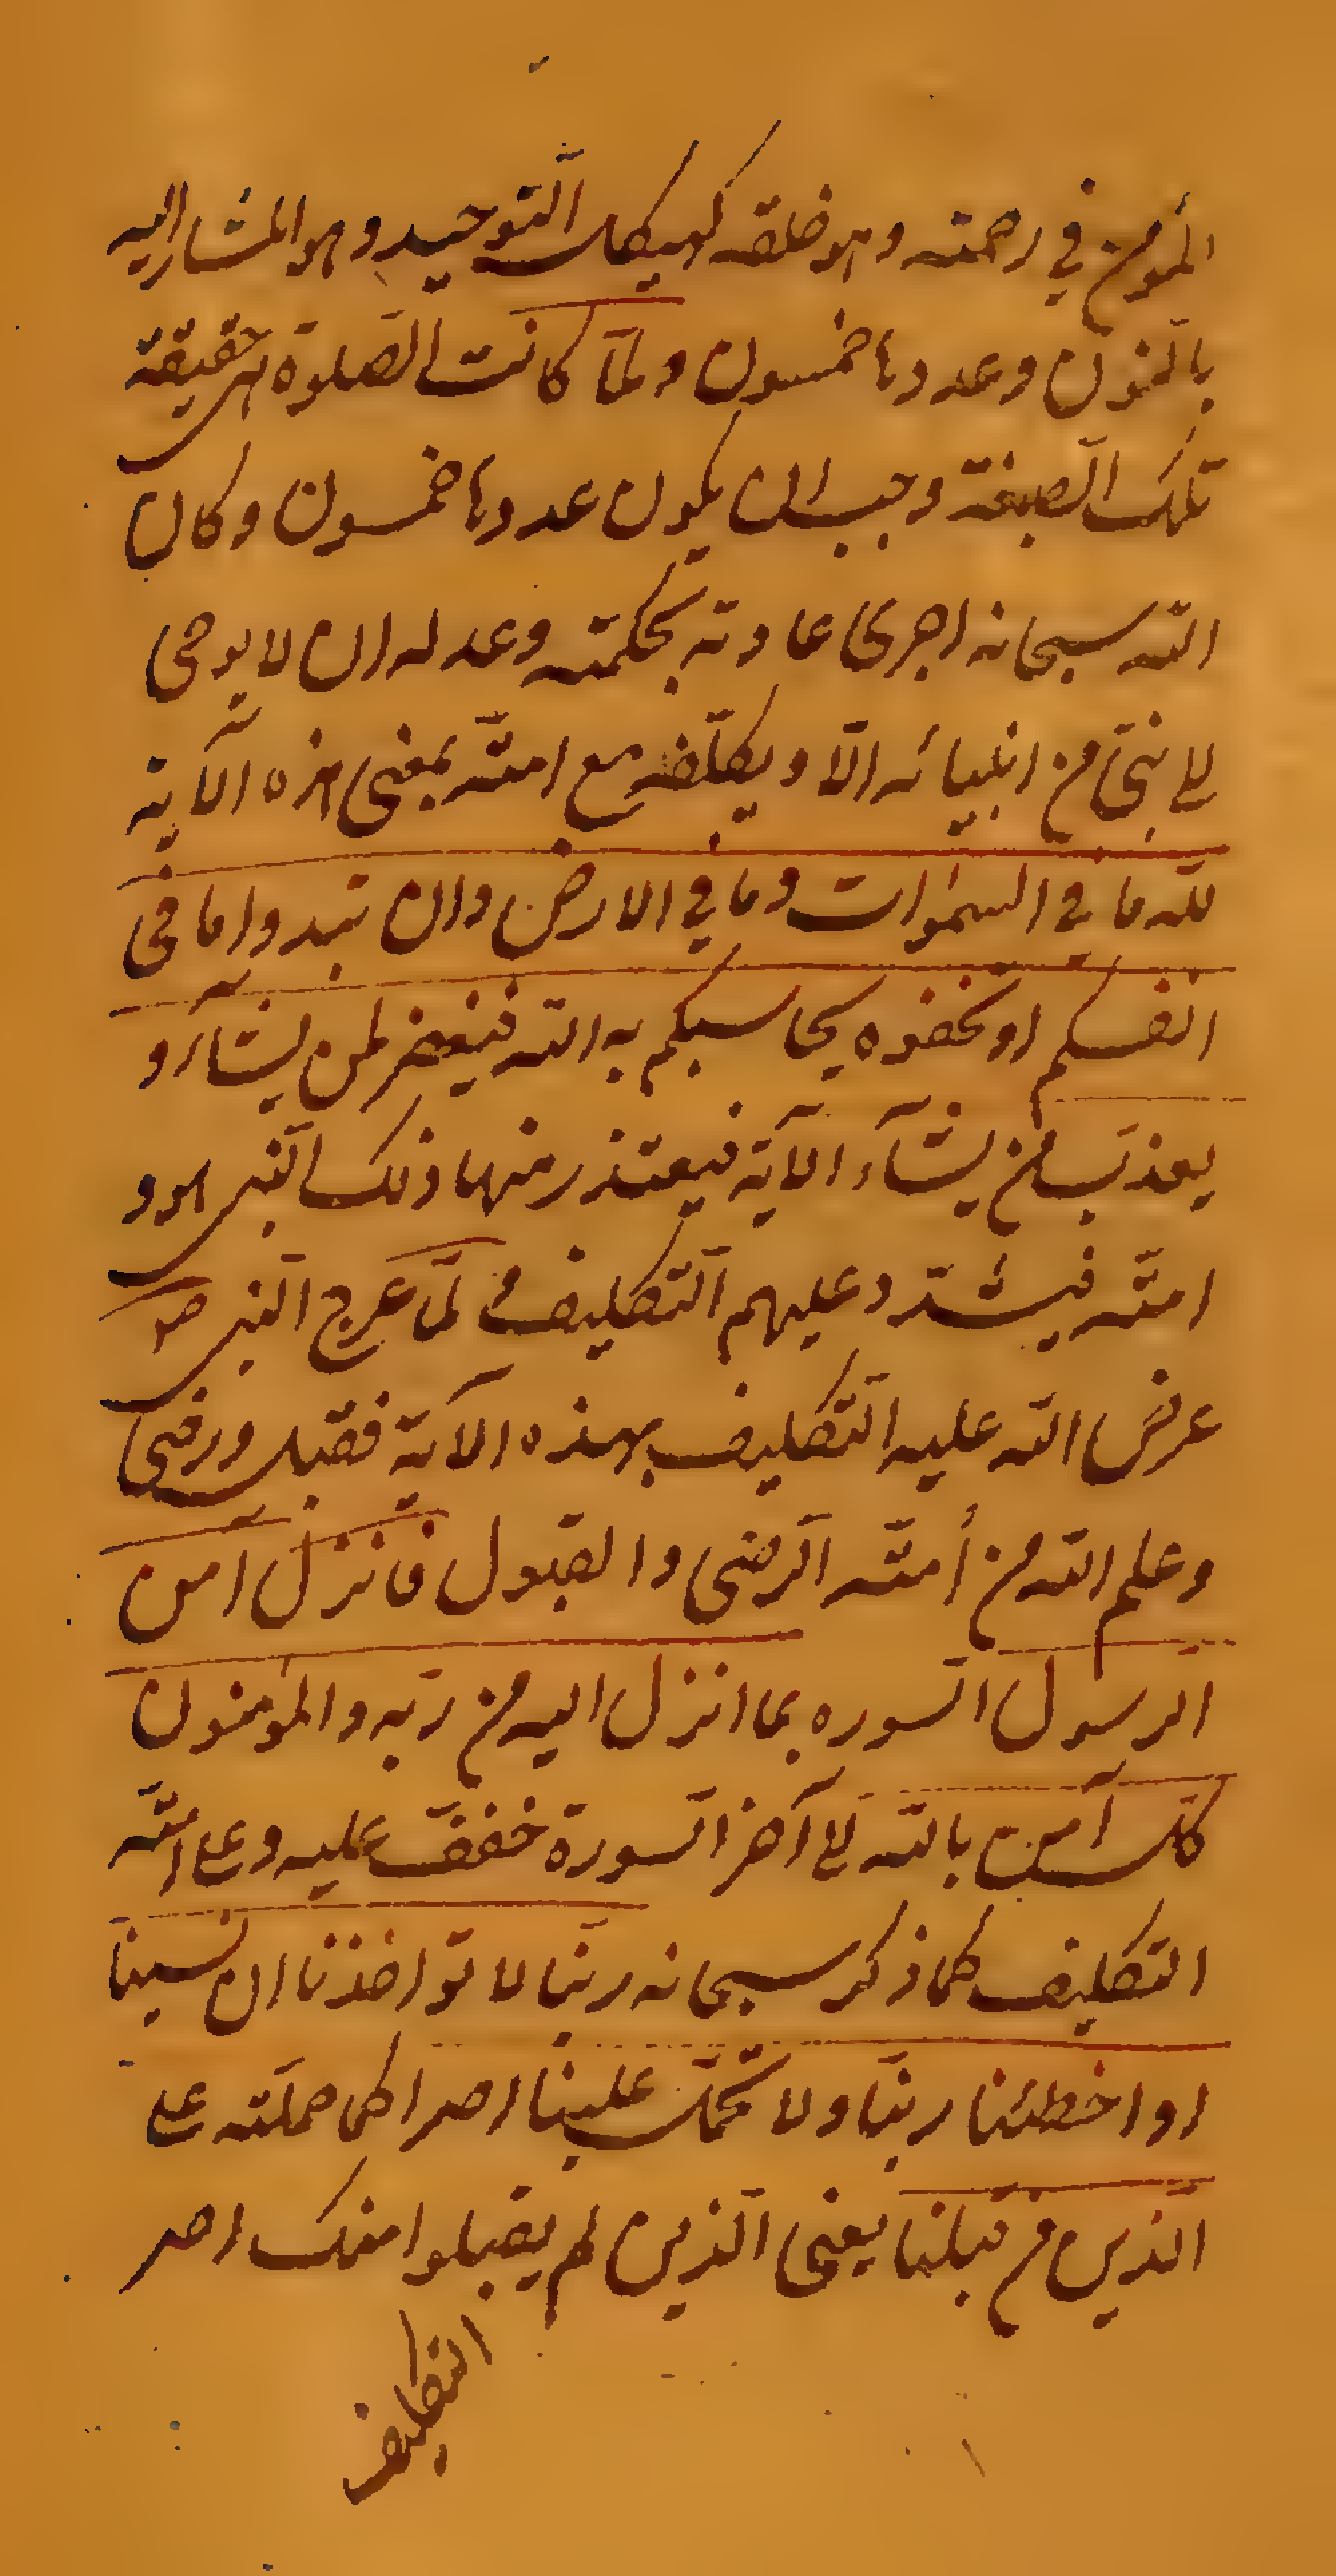 المؤمن في رحمته و هو خلقه كهيكل التّوحيد و هو المشار اليه
بالنّون و عددها خمسون و لمّا كانت الصّلوة هي حقيقة
تلك الصّبغة وجب ان يكون عددها خمسون و كان
اللّه سبحانه اجرى عادته بحكمته و عدله ان لا يوحى
الى نبيّ من انبيائه الّا و يكلّفه مع امّته بمعنى هذه الآية
للّه ما في السموات و ما في الارض و ان تبدوا ما في
انفسكم او تخفوه يحاسبكم به اللّه فيغفر لمن يشآء و
يعذّب من يشآء الآية فيعتذر منها ذلك النّبي هو و
امّته فيشتدّ عليهم التّكليف لمّا عرج النّبي ص
عرض اللّه عليه التّكليف بهذه الآية فقبل و رضى
و علم اللّه من أمّته الرّضى و القبول فانزل آمن
الرّسول السّوره بما انزل اليه من ربّه و المؤمنون
كلّ آمن باللّه الى آخر السّورة خفّف عليه و على امّته
التكليف كما ذكر سبحانه ربّنا لا تؤاخذنا ان نسينا
او اخطئنا ربّنا و لا تحمّل علينا اصرا كما حملته على
الّذين من قبلنا يعنى الّذين لم يقبلوا منك اصر
التكليف